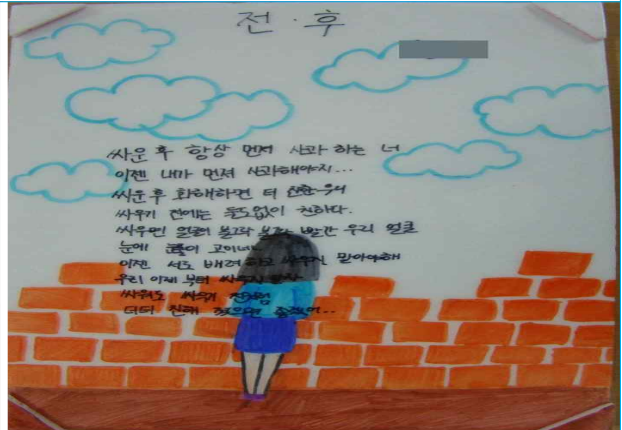 전 · 후
싸운 후 항상 먼저 사과 하는 너
이젠 내가 먼저 사과해야지...
싸운후 화해하면 더 친한 우리
싸우기 전에는 둘도없이 친하다.
싸우면 얼굴이 울그락 불그락 빨간 우리 얼굴
눈에 물이 고이네
이젠 서로 배려하고 싸우지 말아야해
우리 이제 부터 싸우지 말자
싸워도 싸우기 전처럼
더더 친해 졌으면 좋겠어..